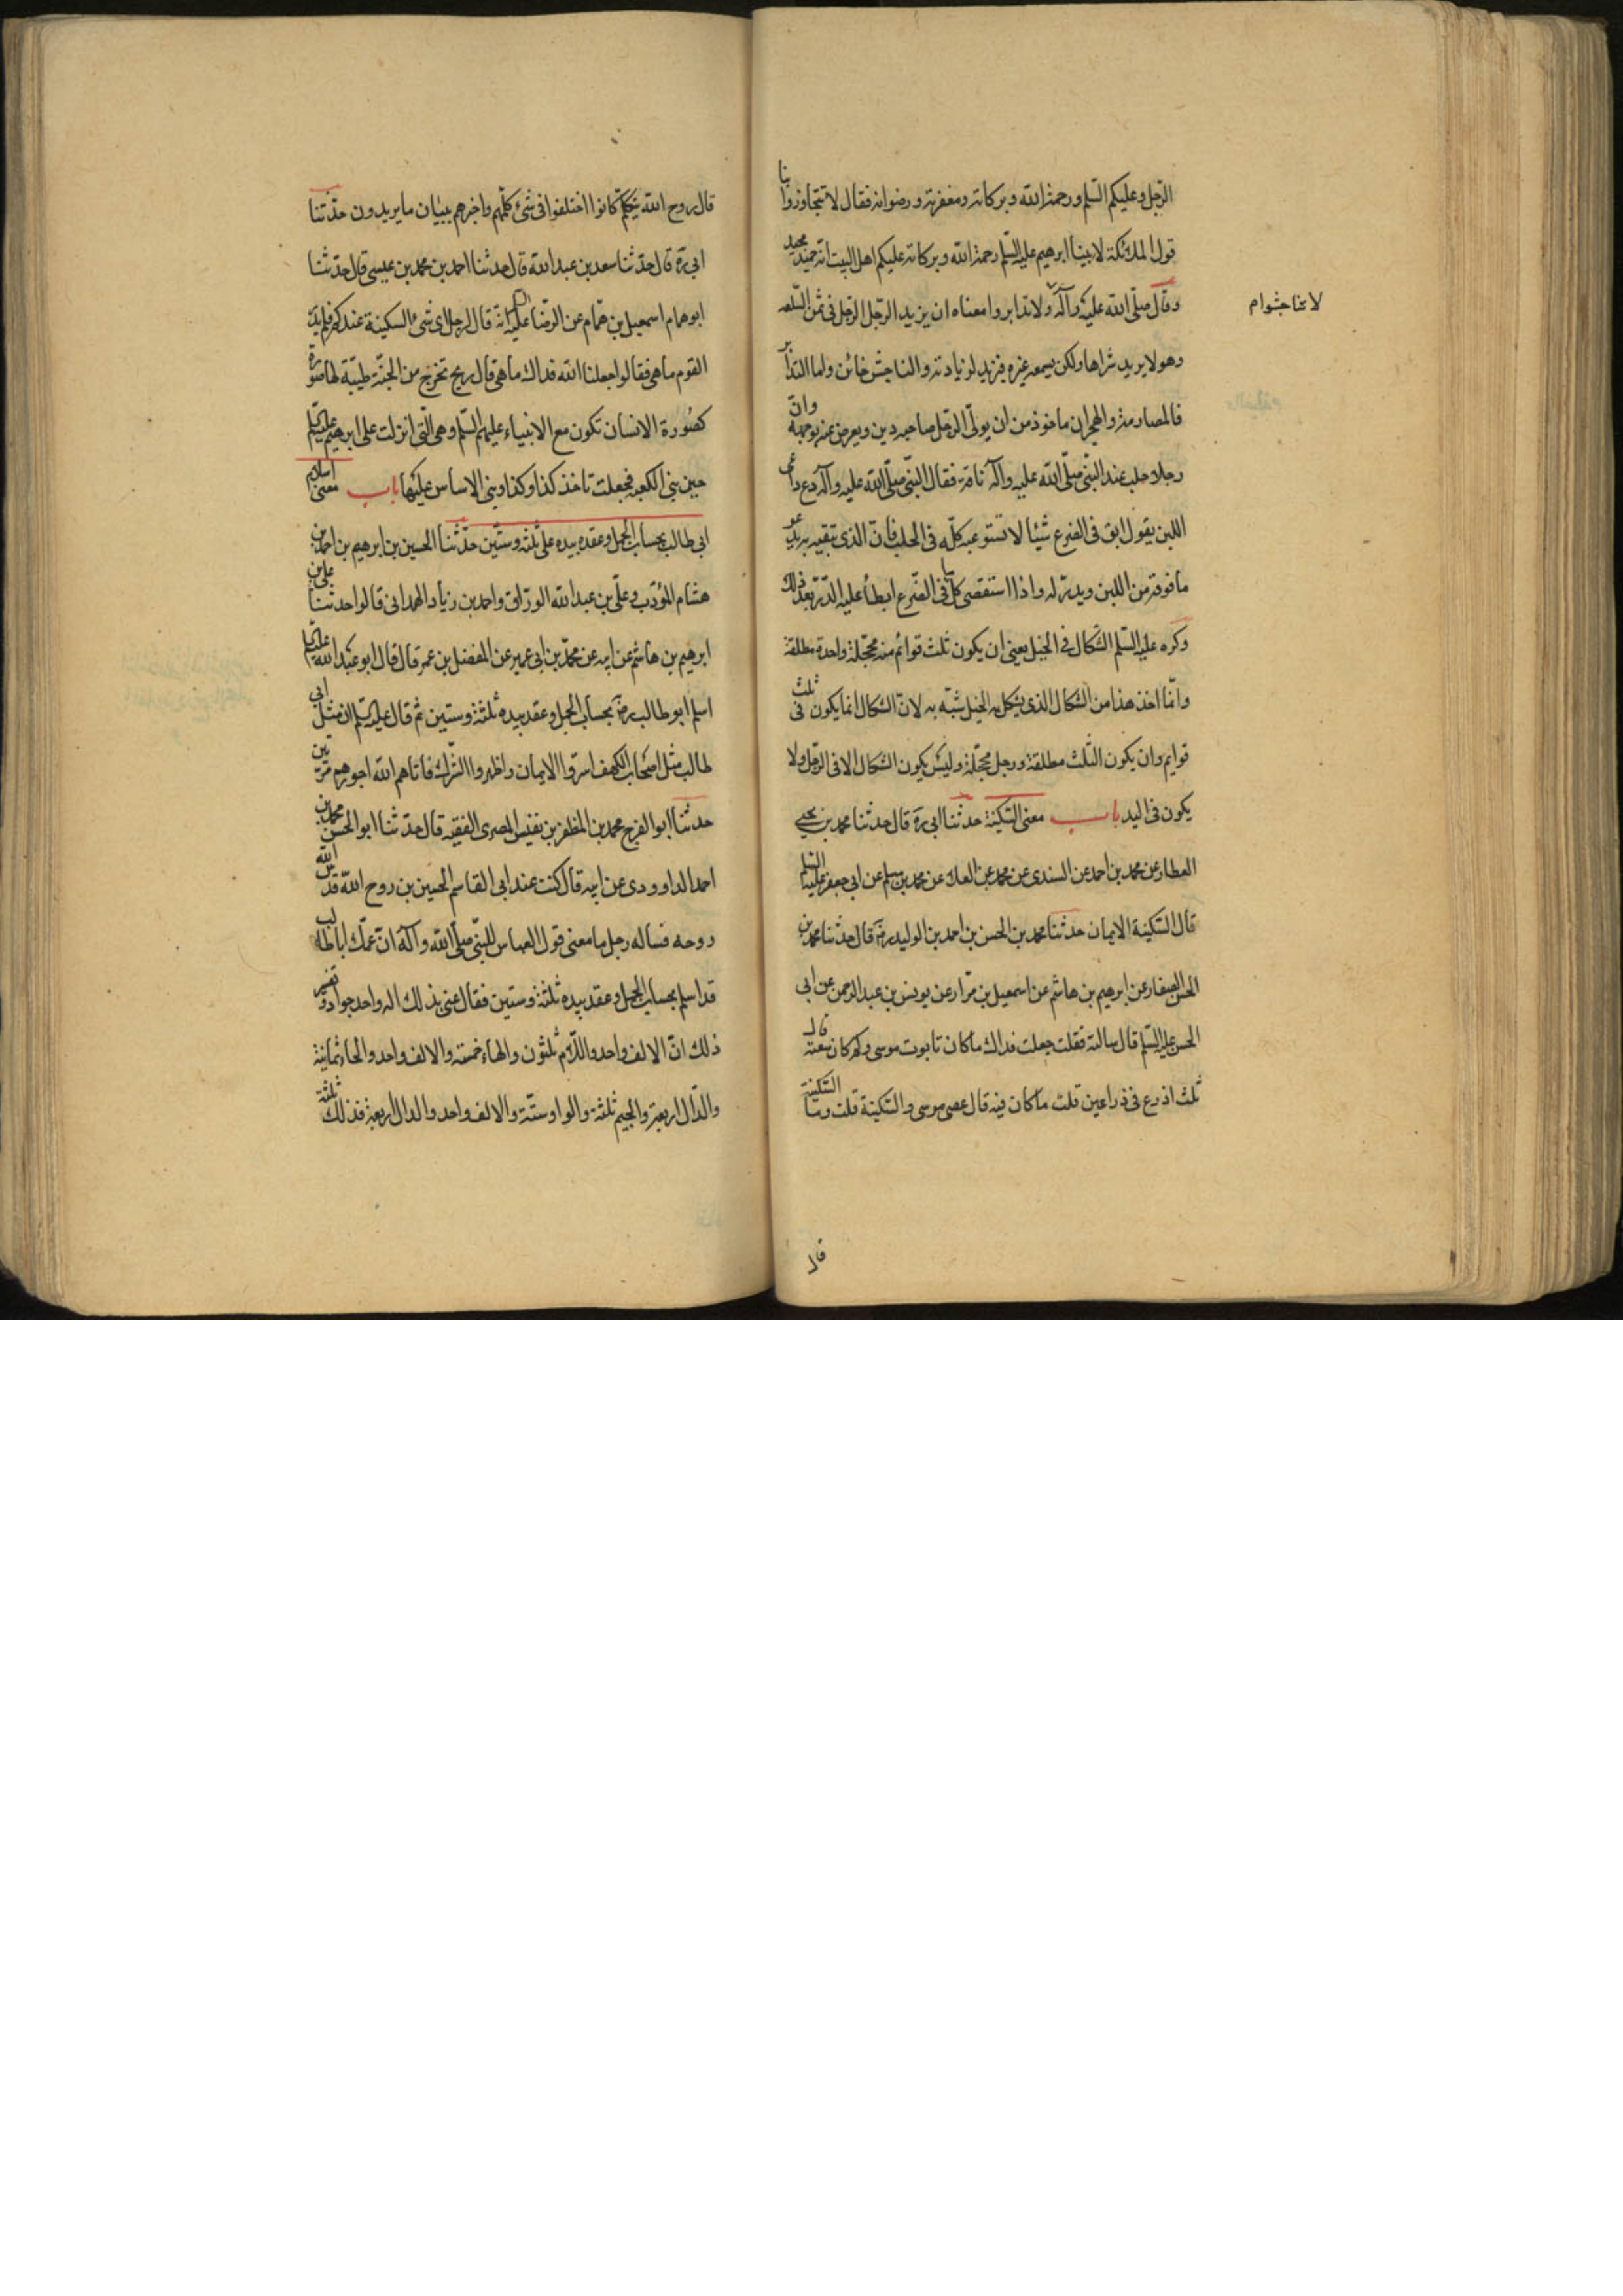 الرّجل وعليكم السّلم ورحمة الله وبركاته ومغفرته ورضوانه فقال لا تتجاوزوا بنا
قول الملئكة لابينا ابرهيم عليه السّلم رحمة الله وبركاته عليكم اهل البيت انه حميد مجيد
وقال صلّى الله عليه وآله ولا تدابروا معناه ان يزيد الرّجل الرّجل فى ثمن السّلعه
لا تناجشوا م
وهو لا يريد شراها ولكن يسمعه غيره فيزيد لزيادته والناجش خائن واما التدابر
فالمصارمة والهجران ماخوذ من ان يولّى الرّجل صاحبه دبن ويعرض عنه بوجهه وانّ
رجلا حلب عند النّبى صلّى الله عليه وآله ناقة فقال النّبى صلّى الله عليه وآله دع داعى
اللبن يقول ابق فى الضرع شيئا لا تستوعبه كلّه فى الحلب فانّ الذى تبقيه به يدعو
ما فوقه من اللبن ويدرّ له واذا استقصى كل ما فى الضّرع ابطأ عليه الدّرّ بعد ذلك
وكره عليه السّلم الشّكال فى الخيل يعنى ان يكون ثلث قوائم منه محجّلة وواحدة مطلقة
وانّما اخذ هذا من الشكال الذى يشكل به الخيل شبّه به لانّ الشكال انما يكون فى ثلث
قوايم وان يكون الثلث مطلقة ورجل محجّلة وليس يكون الشكال الا فى الرّجل ولا
يكون فى اليد باب معنى السّكينة حدثنا ابى ره قال حدثنا محمد بن يحيى
العطار عن محمد بن احمد عن السندى عن محمد عن العلا عن محمد بن مسلم عن ابى جعفر عليه السّلم
قال السّكينة الايمان حدثنا محمد بن الحسن بن احمد بن الوليد ره قال حدثنا محمد بن
الحسن الصفار عن ابرهيم بن هاشم عن اسمعيل بن مرّار عن يونس بن عبد الرحمن عن ابى
الحسن عليه السّلم قال سالته فقلت جعلت فداك ما كان تابوت موسى وكم كان سعته قال
ثلث اذرع فى ذراعين قلت ما كان فيه قال عصى موسى والسّكينة قلت وما السّكينة
قال
قال روح الله يتكلّم كانوا اذا اختلفوا فى شئ كلّمهم واخبرهم ببيان ما يريدون حدّثنا
ابى ره قال حدّثنا سعد بن عبد الله قال حدثنا احمد بن محمد بن عيسى قال حدّثنا
ابو همام اسمعيل بن همّام عن الرضا عليه السلم انّه قال لرجل اىّ شئ السكينة عندكم فلم يدر
القوم ما هى فقالوا جعلنا الله فداك ما هى قال ريح تخرج من الجنّة طيّبة لها صورة
كصُورة الانسان تكون مع الانبياء عليهم السّلم وهى الّتى انزلت على ابرهيم عليه السّلم
حين بنى الكعبه فجعلت تاخذ كذا وكذا وبنى الاساس عليها باب معنى اسلام
ابى طالب بحساب الجمل وعقده بيده على ثلثه وستّين حدّثنا الحسين بن ابرهيم بن احمد بن
هشام المؤدّب وعلىّ بن عبد الله الورّاق واحمد بن زياد الهمدانى قالوا حدثنا على بن
ابرهيم بن هاشم عن ابيه عن محمّد بن ابى عمير عن المفضل بن عمر قال قال ابو عبد الله عليه السّلم
اسلم ابو طالب ره بحساب الجمل وعقد بيده ثلثة وستين ثم قال عليه السّلم ان مثل ابى
طالب مثل اصحاب الكهف اسرّوا الايمان واظهروا الشّرك فاتاهم الله اجرهم مرّتين
حدثنا ابو الفرج محمد بن المظفر بن نفيس المصرى الفقيه قال حدّثنا ابو الحسن محمد بن
احمد الداوودى عن ابيه قال كنت عند ابى القاسم الحسين بن روح الله قدّس الله
روحه فساله رجل ما معنى قول العباس للنّبى صلّى الله وآله انّ عمّك ابا طالب
قد اسلم بحساب الجمل وعقد بيده ثلثة وستين فقال عنى بذلك اله واحد جواد وتفسير
ذلك انّ الالف واحد واللّام ثلثون والهاء خمسة والالف واحد والحاء ثمانية
والدّال اربعة والجيم ثلثة والواو ستّة والالف واحد والدال اربعة فذلك ثلثة